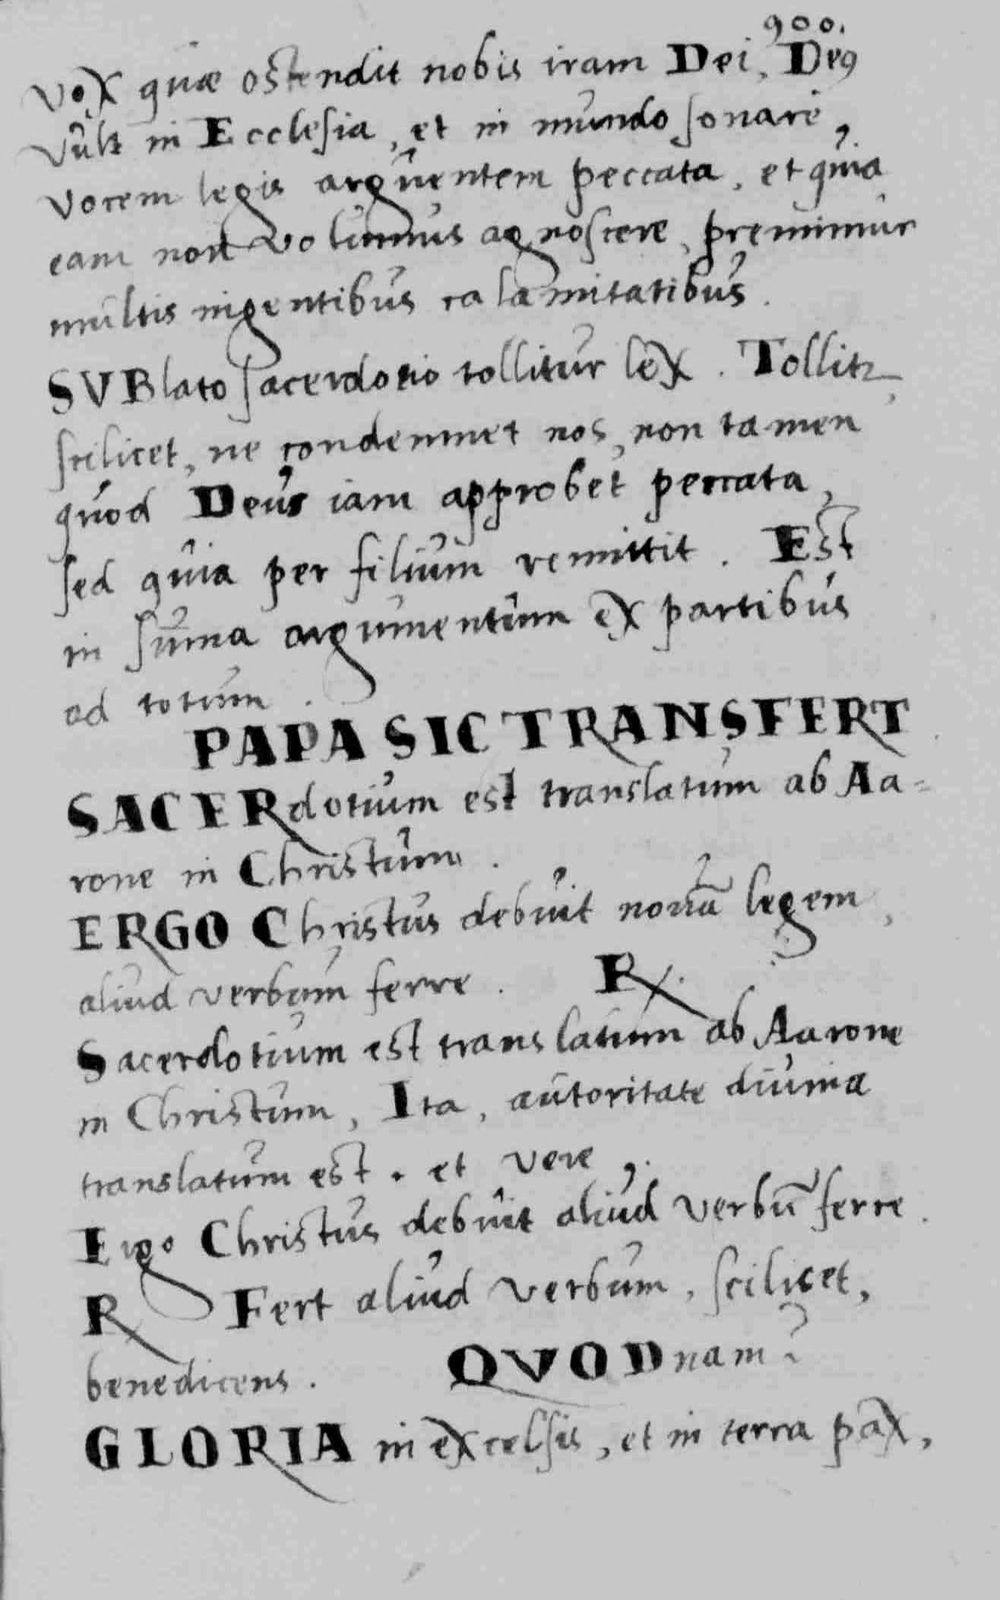 900.
vox quæ ostendit nobis iram Dei, Deꝰ
vult in Ecclesia, et in mundo sonare,
vocem legis arguentem peccata, et quia
eam non volumus agnoscere, premimur
multis ingentibus calamitatibus.
SVBlato sacerdotio tollitur lex. Tollitr,
scilicet, ne condemnet nos, non tamen
quod Deus iam approbet peccata,
sed quia per filium remittit. Est
in sum̄a argumentum ex partibus
ad totum.
PAPA SIC TRANSFERT
SACERdotium est translatum ab Aa-
rone in Christum.
ERGO Christus debuit nouā legem,
aliud verbum ferre. R.
Sacerdotium est translatum ab Aarone
in Christum, Ita, autoritate diuina
translatum est. et vere,.
Ergo Christus debuit aliud verbū ferre.
R Fert aliud verbum, scilicet,
benedicens. QVODnam?
GLORIA in excelsis, et in terra pax,